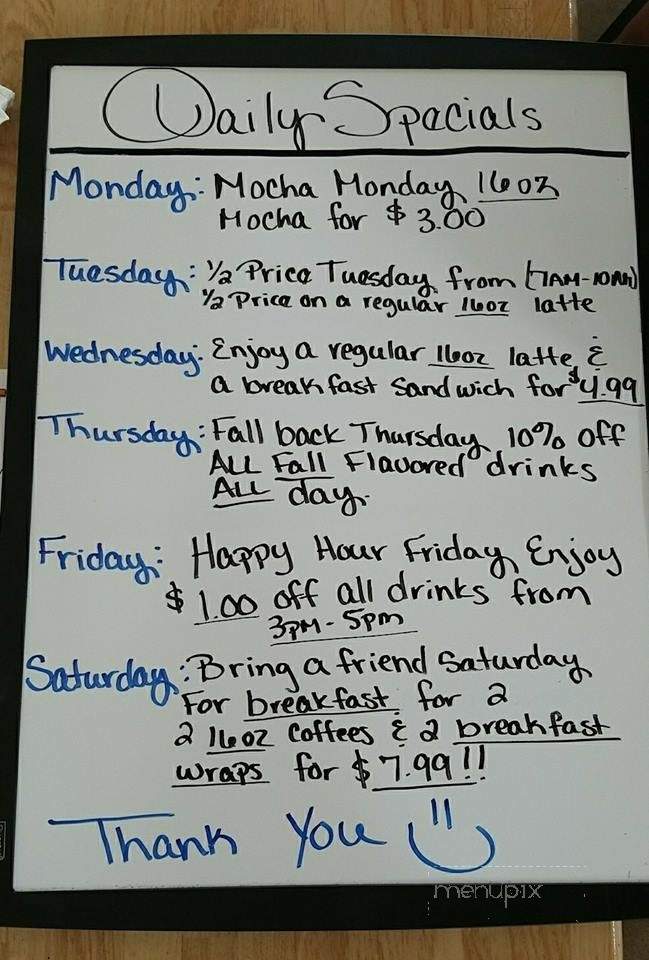 Daily Specials
Monday: Mocha Monday 16oz
Mocha for $3.00
Tuesday: ½ Price Tuesday from (7AM-10AM)
½ Price on a regular 16oz latte
Wednesday: Enjoy a regular 16oz latte &
a breakfast sandwich for $4.99
Thursday: Fall back Thursday 10% off
ALL Fall Flavored drinks
ALL day.
Friday: Happy Hour Friday Enjoy
$1.00 off all drinks from
3PM-5pm
Saturday: Bring a friend Saturday
For breakfast for 2
2 16oz coffees & 2 breakfast
wraps for $7.99!!
Thank You
menupix